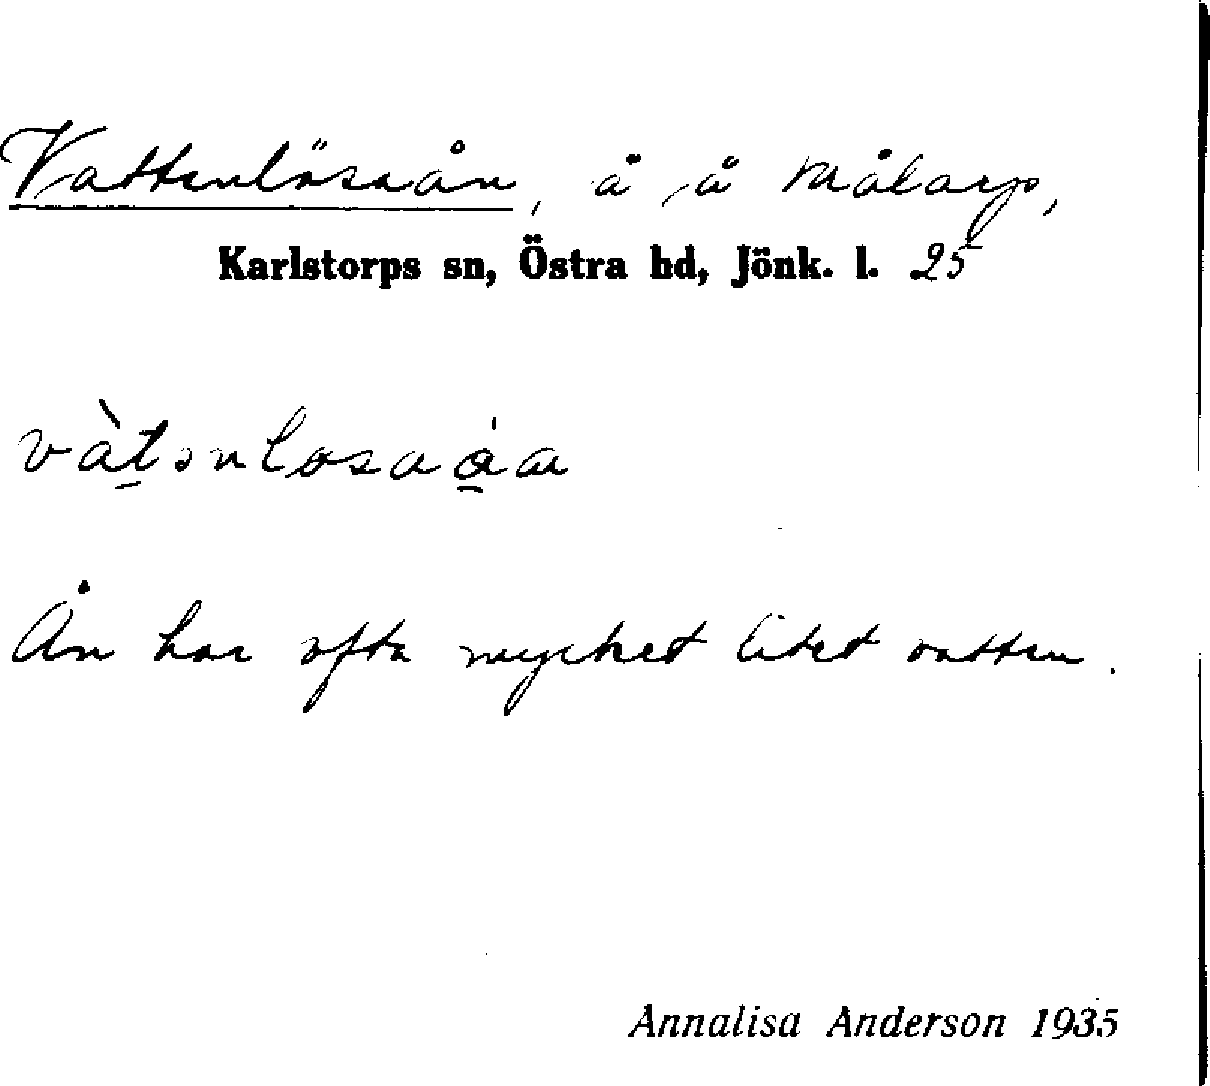 Vattenlösaån, å å Målarp,
Karlstorps sn, Östra hd, Jönk. l. 25
vàt̠ənløsaǻ̠a
Ån har ofta mycket litet vatten.
Annalisa Anderson 1935